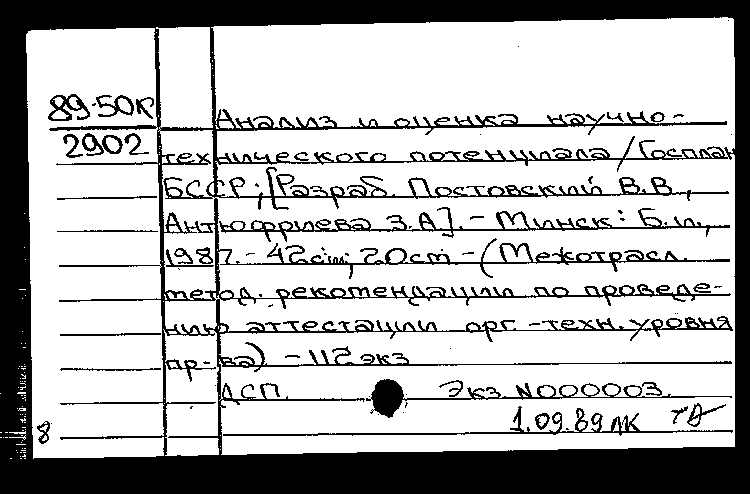 89-50К
2902
Анализ и оценка научно-
технического потенциала / Госплан
БССР; [Разраб. Постовский В.В.,
Антюфриева З.А]. - Минск: Б.и.,
1987. - 42с ил; 20cm - (Межотрасл.
метод. рекомендации по проведе-
нию аттестации орг-техн. уровня
пр-ва) - 112 экз
ДСП. Экз N000003.
1.09.89 ЛК
8